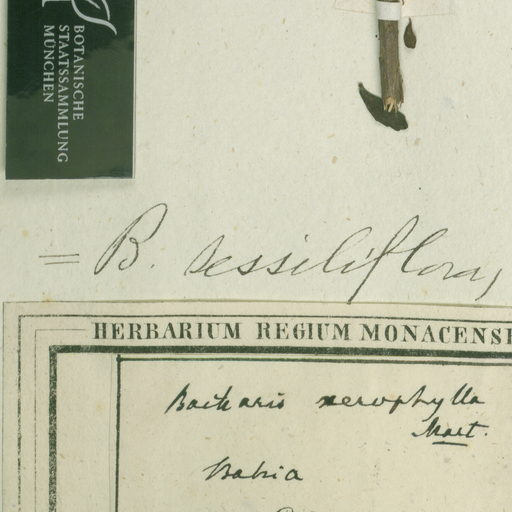 BOTANISCHE
STAATSSAMMLUNG
MÜNCHEN
= B. sessiliflora,
HERBARIUM REGIUM MONACENSE
Baccharis xerophylla
Mart.
Bahia